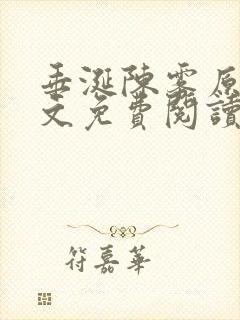 垂涎陳雾原
文免費閱讀
符嘉華